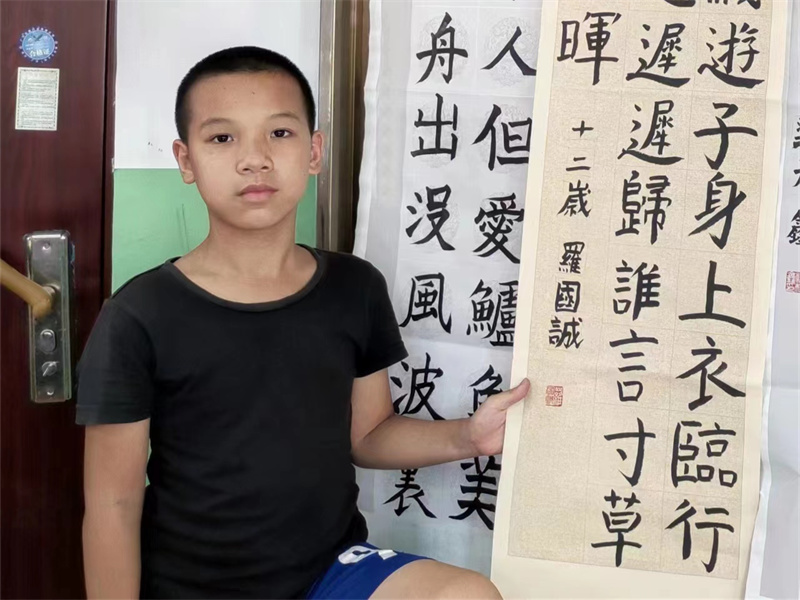 遊子身上衣臨行
遲遲歸誰言寸草
暉
十二歲 羅國誠
人但愛鱸魚美
舟出沒風波裏